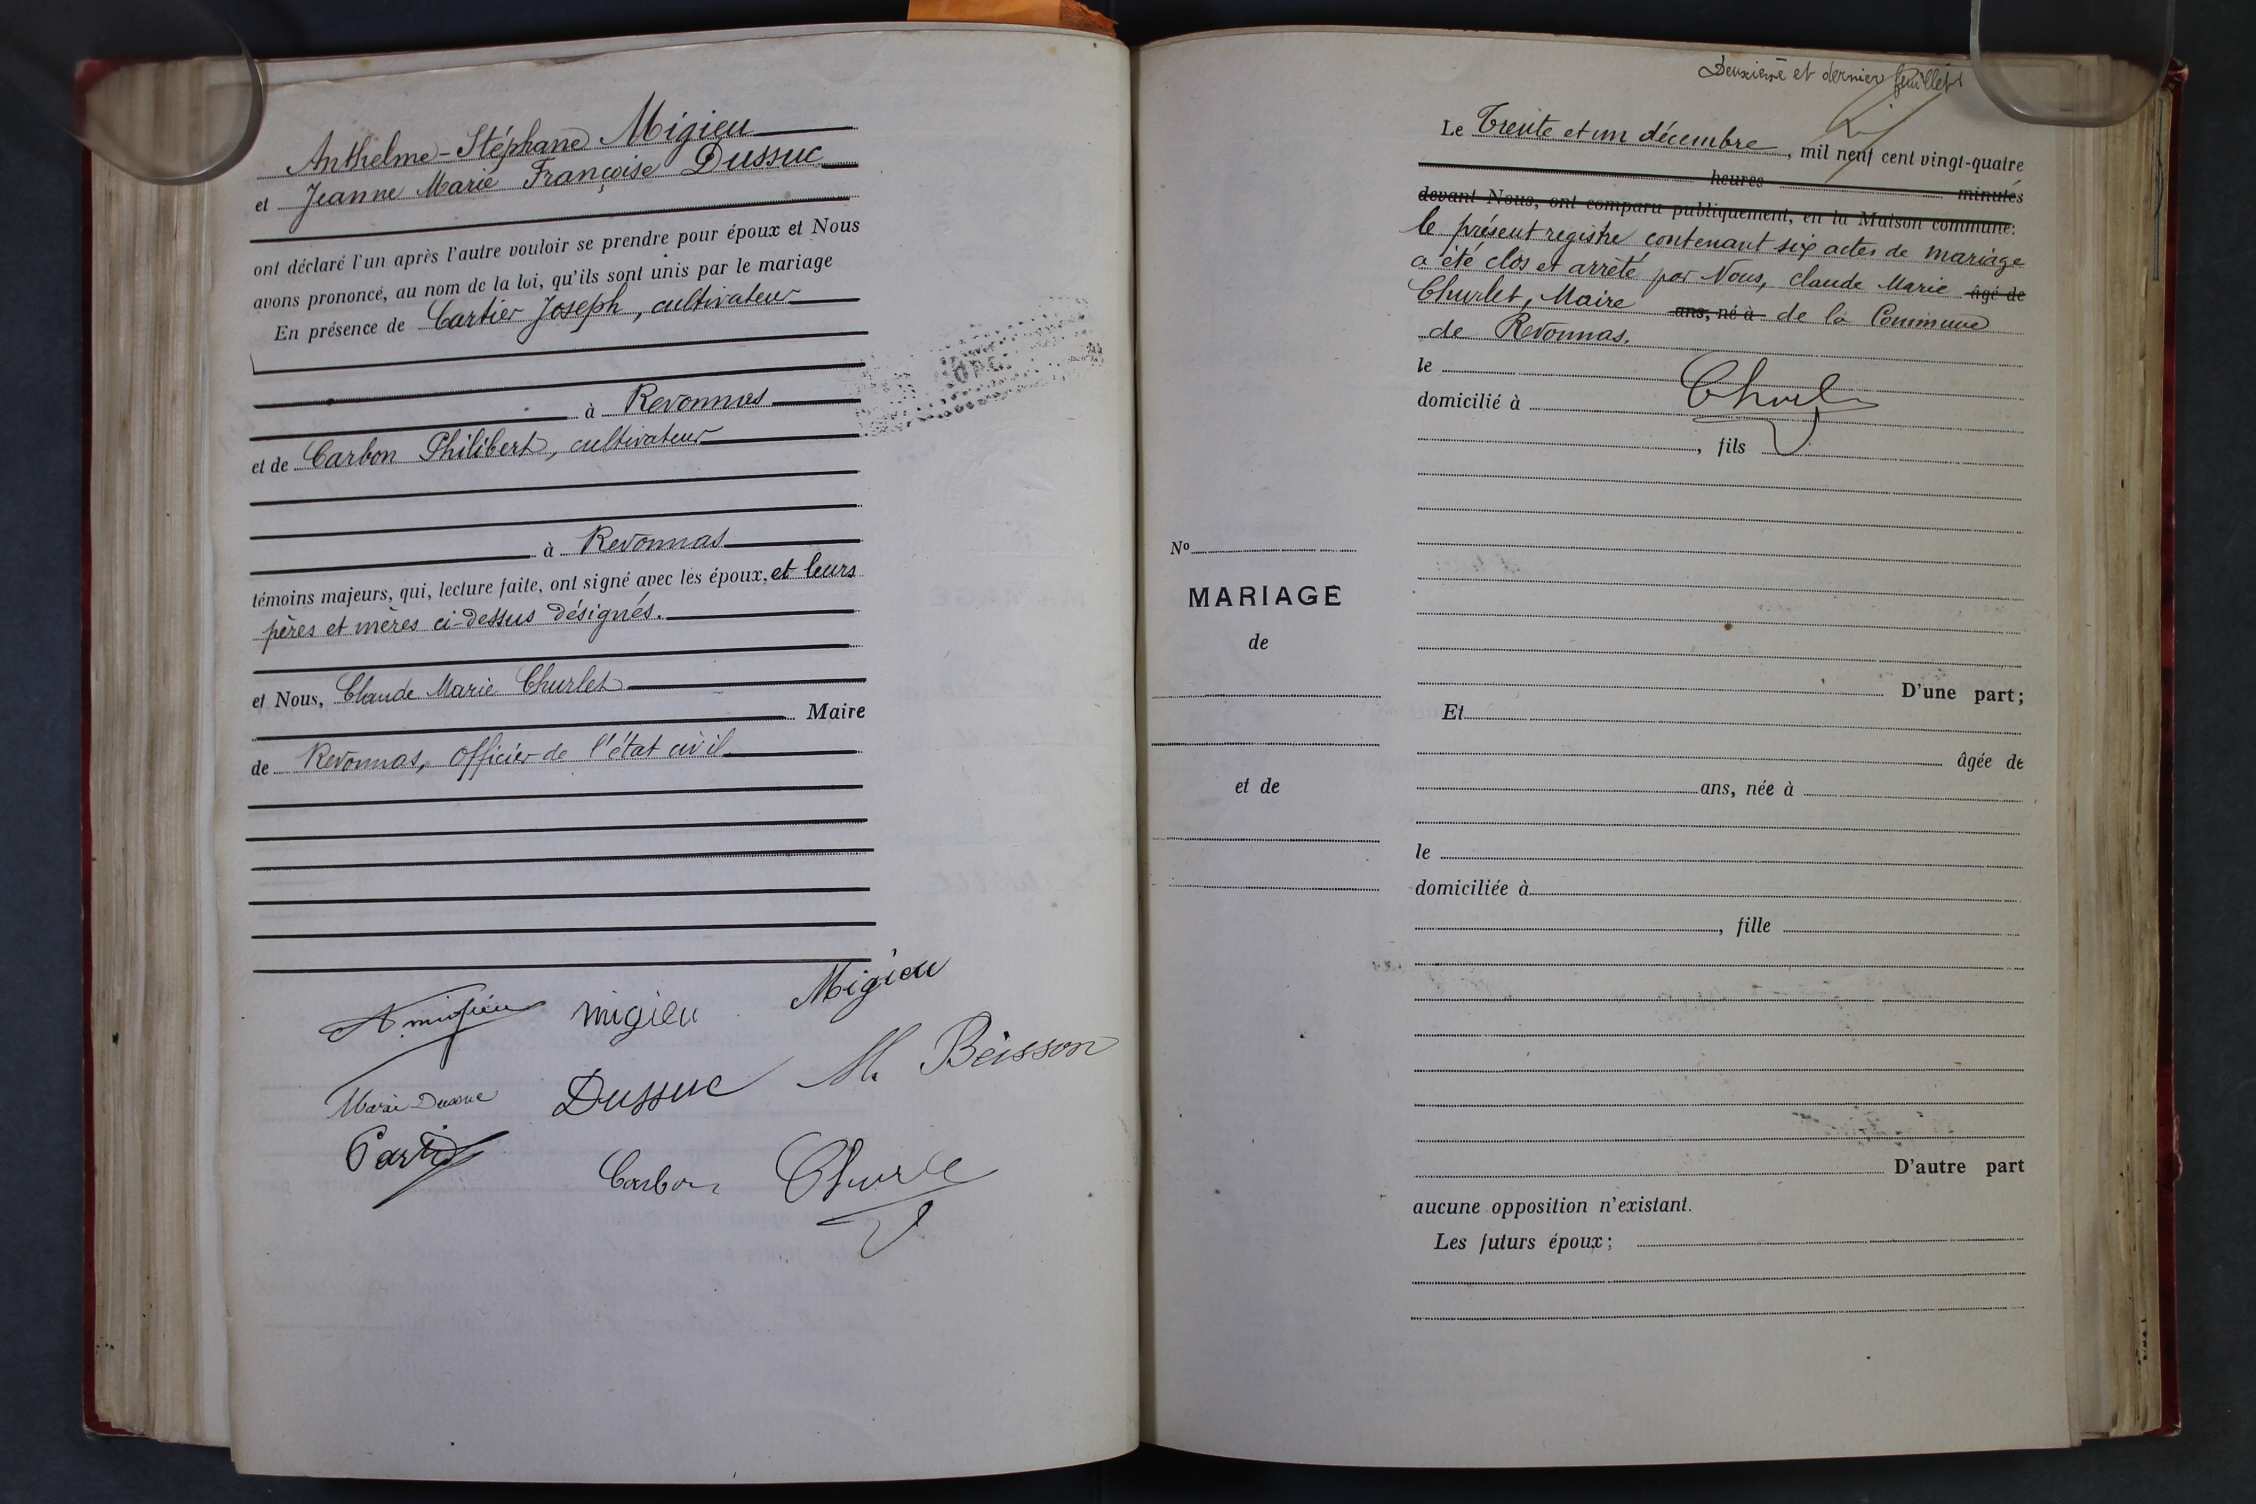 Anthelme-Stéphane Migieu
et Jeanne Marie Françoise Dussuc
ont déclaré l'un après l'autre vouloir se prendre pour époux et Nous
avons prononcé, au nom de la loi, qu'ils sont unis par le mariage
En présence de Cartier Joseph, cultivateur
à Revonnas
et de Carbon Philibert, cultivateur
à Revonnas
témoins majeurs, qui, lecture faite, ont signé avec les époux, et leurs
pères et mères ci-dessus désignés.
et Nous, Claude Marie Churlet
Maire
de Revonnas, officier de l'état civil
A migieu migieu Migieu
Marie Dussuc Dussuc M. Beisson
Carbon
Deuxième et dernier feuillet
Le Trente et un décembre, mil neuf cent vingt-quatre
heures minutes
devant Nous, ont comparu publiquement, en la Maison commune:
le présent registre contenant six actes de mariage
a été clos et arrêté par Nous, Claude Marie âgé de
Churlet, Maire ans, né à de la Commune
de Revonnas.
le
domicilié à
, fils
No
MARIAGE
de
et de
D'une part;
Et
âgée de
ans, née à
le
domiciliée à
, fille
D'autre part
aucune opposition n'existant.
Les futurs époux;